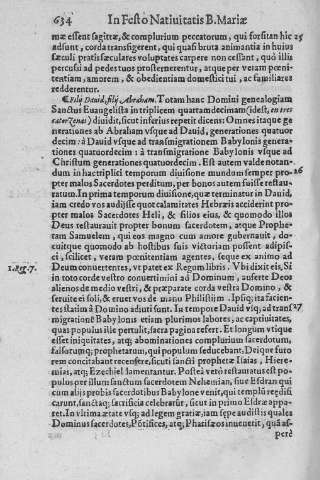 634 In Festo Natiuitatis B. Mariæ
mæ essent sagittæ, & complurium peccatorum, qui forsitan hic 25
adsunt, corda transfigerent, qui quasi bruta animantia in huius
sæculi prati sæculares voluptates carpere non cessant, quò illis
percussi ad pedes tuos prosternerentur, atque per veram pœni-
tentiam, amorem, & obedientiam domestici tui, ac familiares
redderentur.
Filij Dauid, filij Abraham. Totam hanc Domini genealogiam
Sanctus Euangelista in triplicem quartamdecimam (idest, en tres
catorzenas) diuidit, sicut inferius repetit dicens: Omnes itaque ge
nerationes ab Abraham vsque ad Dauid, generationes quatuor
decim: à Dauid vsque ad transmigrationem Babylonis genera-
tiones quatuordecim: à transmigratione Babylonis vsque ad
Christum generationes quatuordecim. Est autem valde notan-
dum in hac triplici temporum diuisione mundum semper pro- 26
pter malos Sacerdotes perditum, per bonos autem fuisse restau-
ratum. In prima temporum diuisione, quæ terminatur in Dauid,
iam credo vos audisse quot calamitates Hebræis acciderint pro-
pter malos Sacerdotes Heli, & filios eius, & quomodo illos
Deus restaurauit propter bonum sacerdotem, atque Prophe-
tam Samuelem, qui eos magno cum amore gubernauit, do-
cuitque quomodo ab hostibus suis victoriam possent adipis-
ci, scilicet, veram pœnitentiam agentes, seque ex animo ad
1. Reg. 7. Deum conuertentes, vt patet ex Regum libris. Vbi dixit eis, Si
in toto corde vestro conuertimini ad Dominum, auferte Deos
alienos de medio vestri, & præparate corda vestra Domino, &
seruite ei soli, & eruet vos de manu Philistijm. Ipsiq; ita facien-
tes statim à Domino adiuti sunt. In tempore Dauid vsq; ad trans 27
migrationem Babylonis etiam plurimos labores, ac captiuitates,
quas populus ille pertulit, sacra pagina refert. Et longum vtique
esset iniquitates, atq; abominationes complurium sacerdotum,
falsorumq; prophetarum, qui populum seducebant, Deique furo
rem concitabant recensere, sicuti sancti prophetæ Isaias, Hiere-
mias, atq; Ezechiel lamentantur. Posteà verò restauratus est po-
pulus per illum sanctum sacerdotem Nehemian, siue Esdran qui
cum alijs probis sacerdotibus Babylone venit, qui templū redifi
carunt, sanctaq; sacrificia celebrarūt, sicut in primo Esdræ appa-
ret. In vltima ætate vsq; ad legem gratiæ, iam sępe audistis quales
Dominus sacerdotes, Pōtifices, atq; Pharisæos inuenerit, quā as-
perè